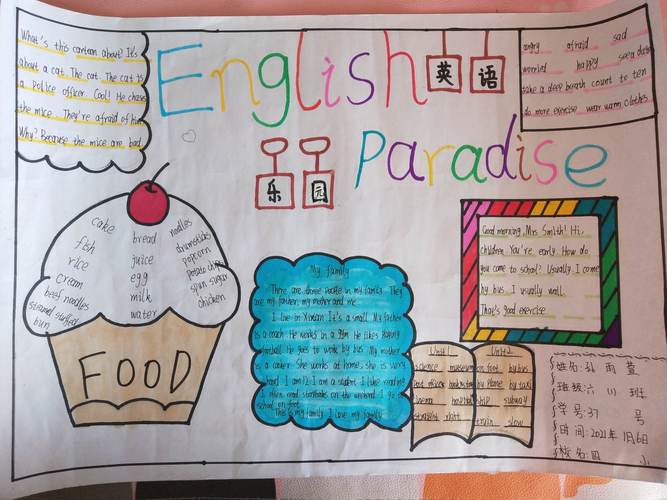 What's this cartoon about? It's
about a cat. The cat. The cat is
a police officer. Cool! He chase
the mice. They're afraid of him
Why? Because the mice are bad.
English
英语
乐园
Paradise
angry afraid sad
worried happy see a doctor
take a deep breath count to ten
do more exercise wear warm clothes
cake
fish
rice
cream
beef noodles
steamed stuffed
bun
bread
juice
egg
milk
water
noodles
drumsticks
popcorn
potato chips
spun sugar
chicken
FOOD
My family
There are three people in my family. They
are my father, my mother and me.
I live in It's a small. My father
is a coach. He works in a gym. He likes playing
football. He goes to work by bus. My mother
is a cooker. She works at home, she is very
hard. I am 12. I am a student. I like reading
I often read storybooks on the weekend. I go
school on foot.
This is my family. I love my family.
Good morning, Mrs Smith! Hi,
children. You're early. How do
you come to school? Usually, I come
by bus. I usually walk.
That's good exercise
Unit1
science museum
post office bookstore
cinema hospital
straight right
Unit2
on foot by bus
by plane by taxi
ship subway
train slow
姓名:孙雨萱
班级:六(1)班
学号:37号
时间:2021年1月6日
校名:四小